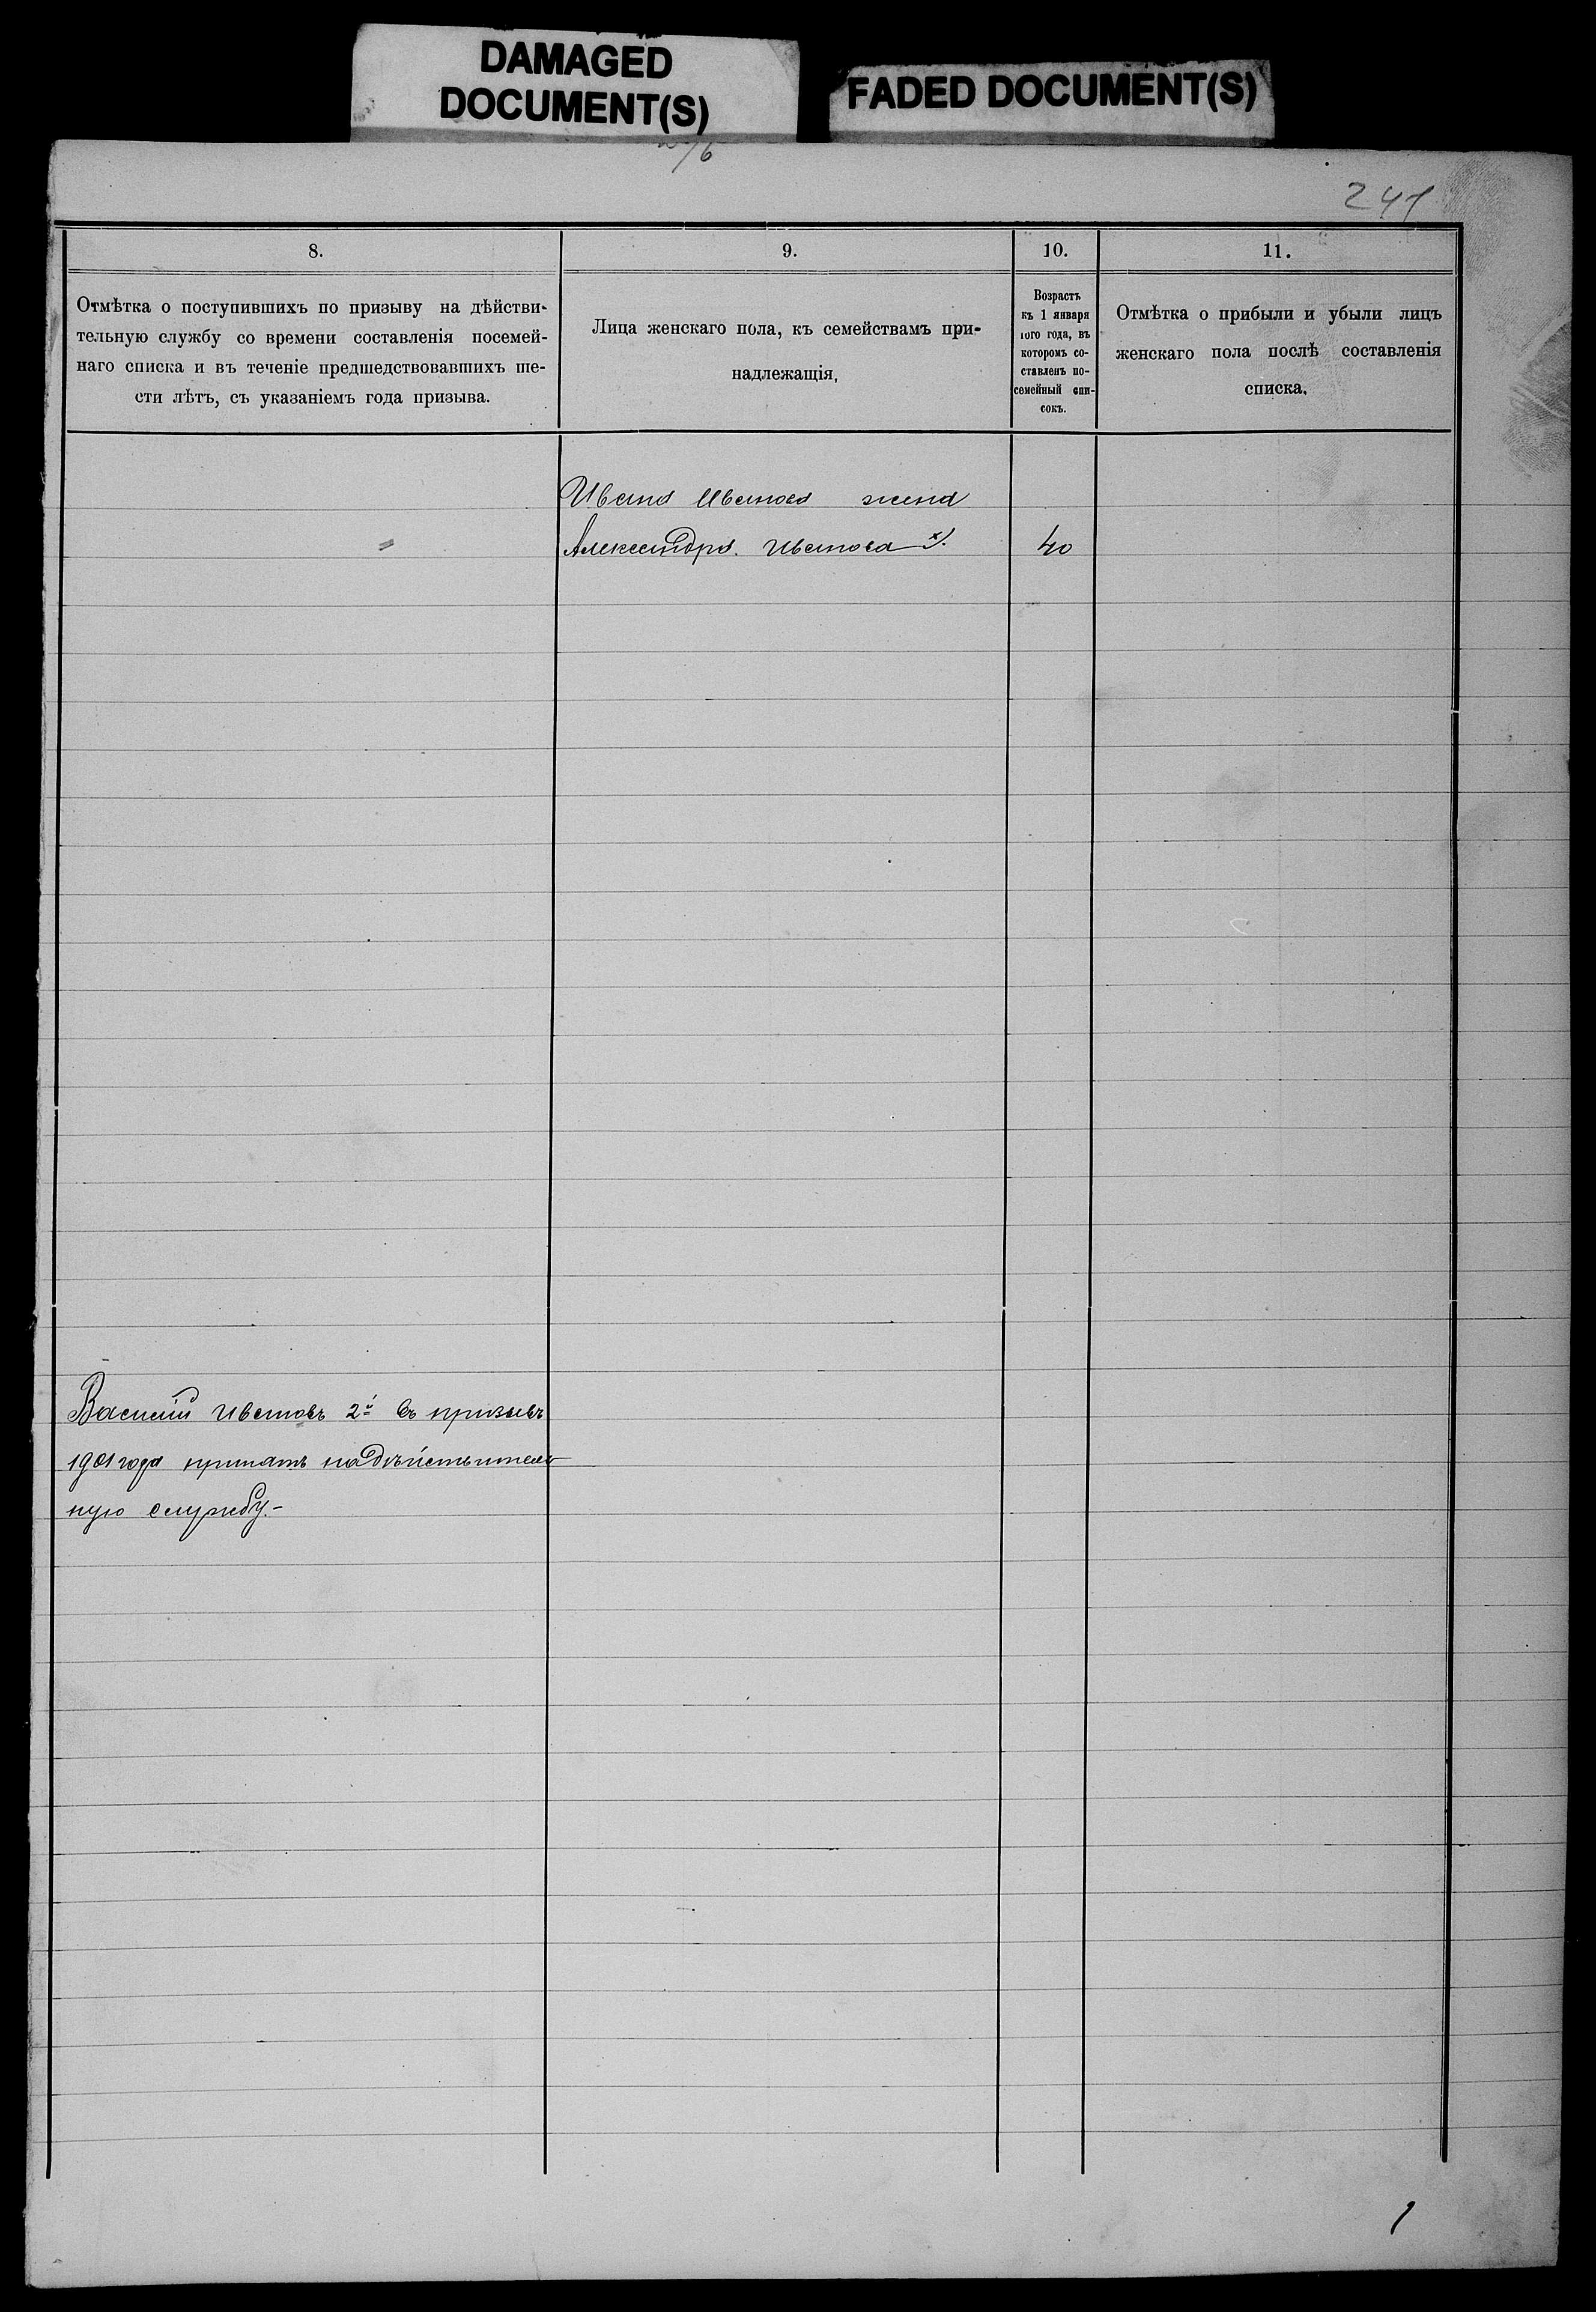 DAMAGED
DOCUMENT(S)
FADED DOCUMENT(S)
241
8.
Отмѣтка о поступившихъ по призыву на дѣйстви-
тельную службу со времени составленія посемей-
наго списка и въ теченіе предшедствовавшихъ ше-
сти лѣтъ, съ указаніемъ года призыва.
9.
Лица женскаго пола, къ семействамъ при-
надлежащія,
10.
Возрастъ
къ 1 января
1ого года, въ
которомъ со-
ставленъ по-
семейный спи-
сокъ.
11.
Отмѣтка о прибыли и убыли лицъ
женскаго пола послѣ составленія
списка.
Ивана Иванова жена
Александра Иванова
40
Василій Ивановъ 2й въ призывъ
1901 года принятъ на дѣйствитель
ную службу.-
1